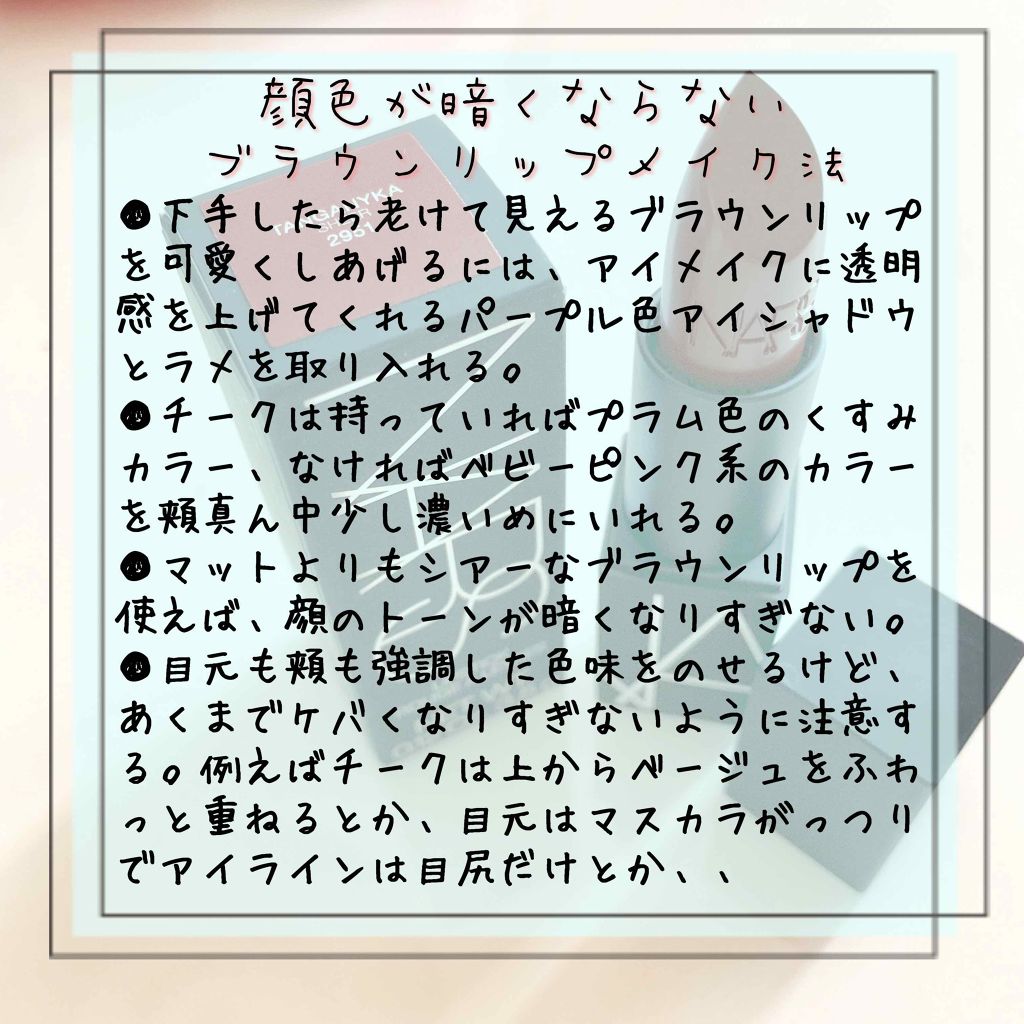 顔色が暗くならない
ブラウンリップメイク法
●下手したら老けて見えるブラウンリップ
を可愛くしあげるには、アイメイクに透明
感を上げてくれるパープル色アイシャドウ
とラメを取り入れる。
●チークは持っていればプラム色のくすみ
カラー、なければベビーピンク系のカラー
を頬真ん中少し濃いめにいれる。
●マットよりもシアーなブラウンリップを
使えば、顔のトーンが暗くなりすぎない。
●目元も頬も強調した色味をのせるけど、
あくまでケバくなりすぎないように注意す
る。例えばチークは上からベージュをふわ
っと重ねるとか、目元はマスカラがっつり
でアイラインは目尻だけとか、、
TANGANYKA
SHEER
2931
NARS